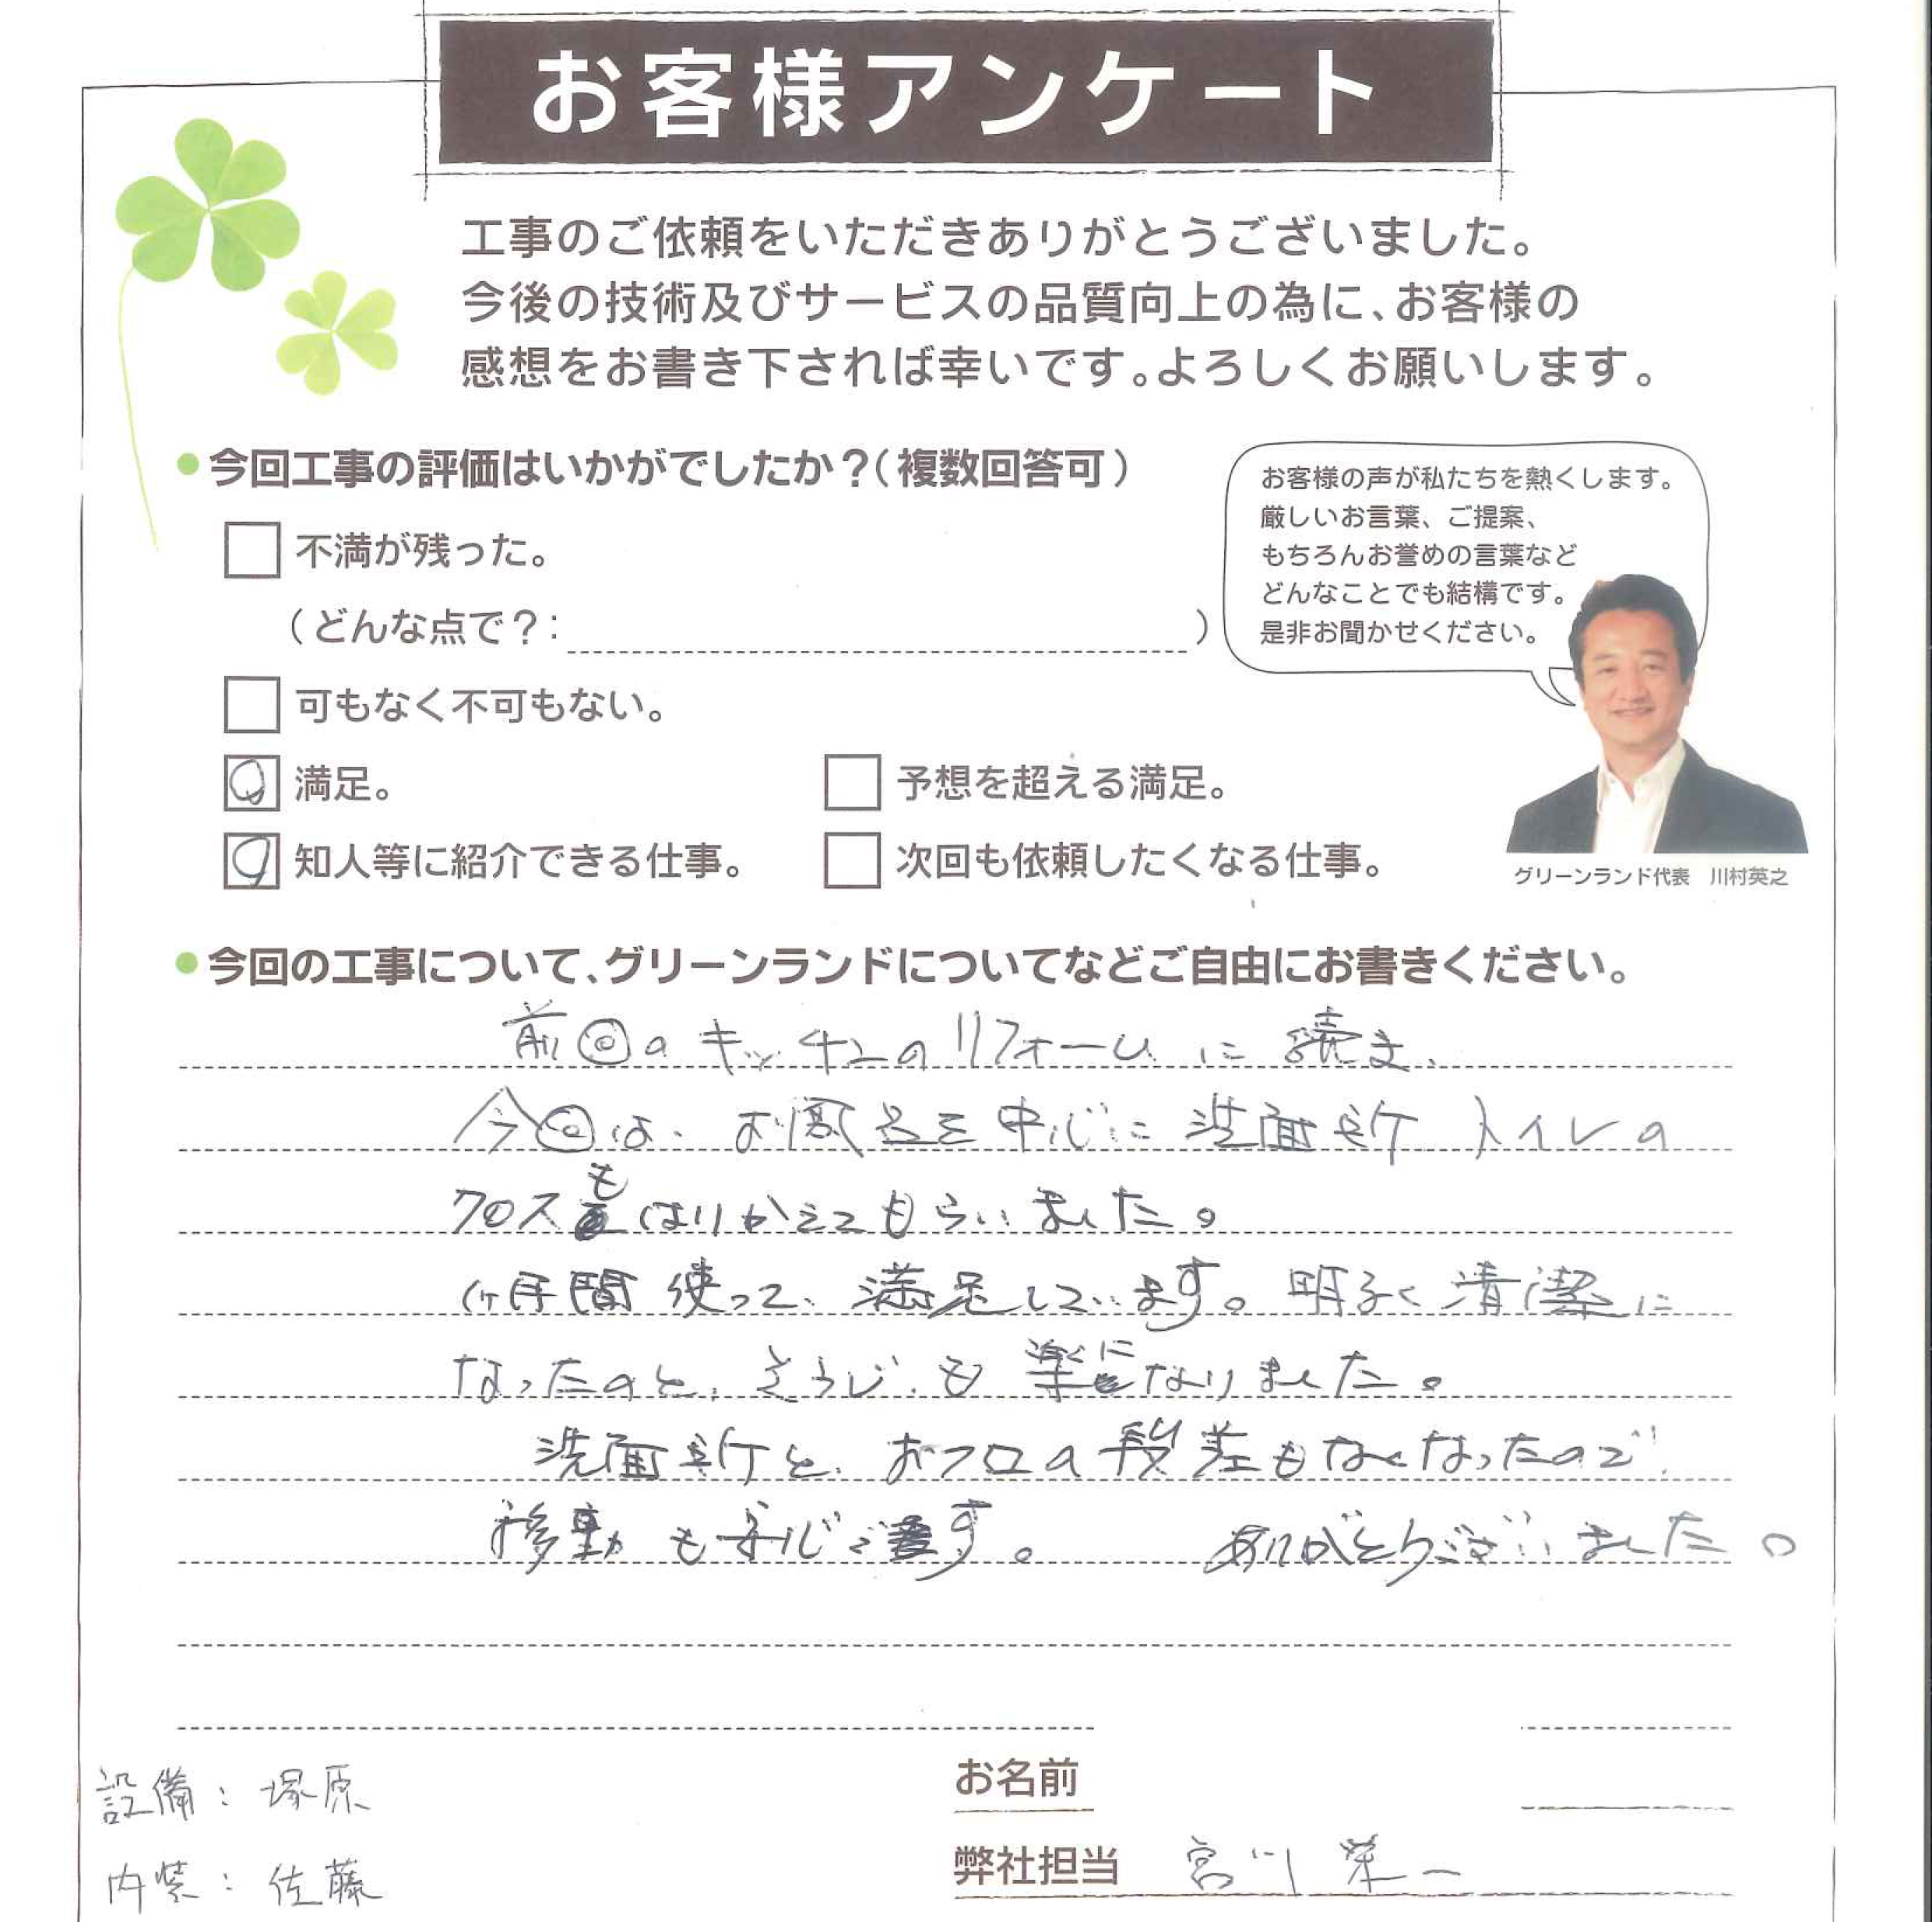 お客様アンケート
工事のご依頼をいただきありがとうございました。
今後の技術及びサービスの品質向上の為に、お客様の
感想をお書き下されば幸いです。よろしくお願いします。
●今回工事の評価はいかがでしたか？（複数回答可）
不満が残った。
（どんな点で？：　）
可もなく不可もない。
満足。
予想を超える満足。
知人等に紹介できる仕事。
次回も依頼したくなる仕事。
お客様の声が私たちを熱くします。
厳しいお言葉、ご提案、
もちろんお誉めの言葉など
どんなことでも結構です。
是非お聞かせください。
グリーンランド代表　川村英之
●今回の工事について、グリーンランドについてなどご自由にお書きください。
前回のキッチンのリフォームに続き、
今回は、お風呂を中心に洗面所 トイレの
クロスもはりかえてもらいました。
1ヶ月間使って、満足しています。明るく清潔に
なったのと、そうじも楽になりました。
洗面所と、おフロの段差もなくなったので、
移動も安心です。 ありがとうございました。
設備：塚原
内装：佐藤
お名前
弊社担当 宮川 栄一